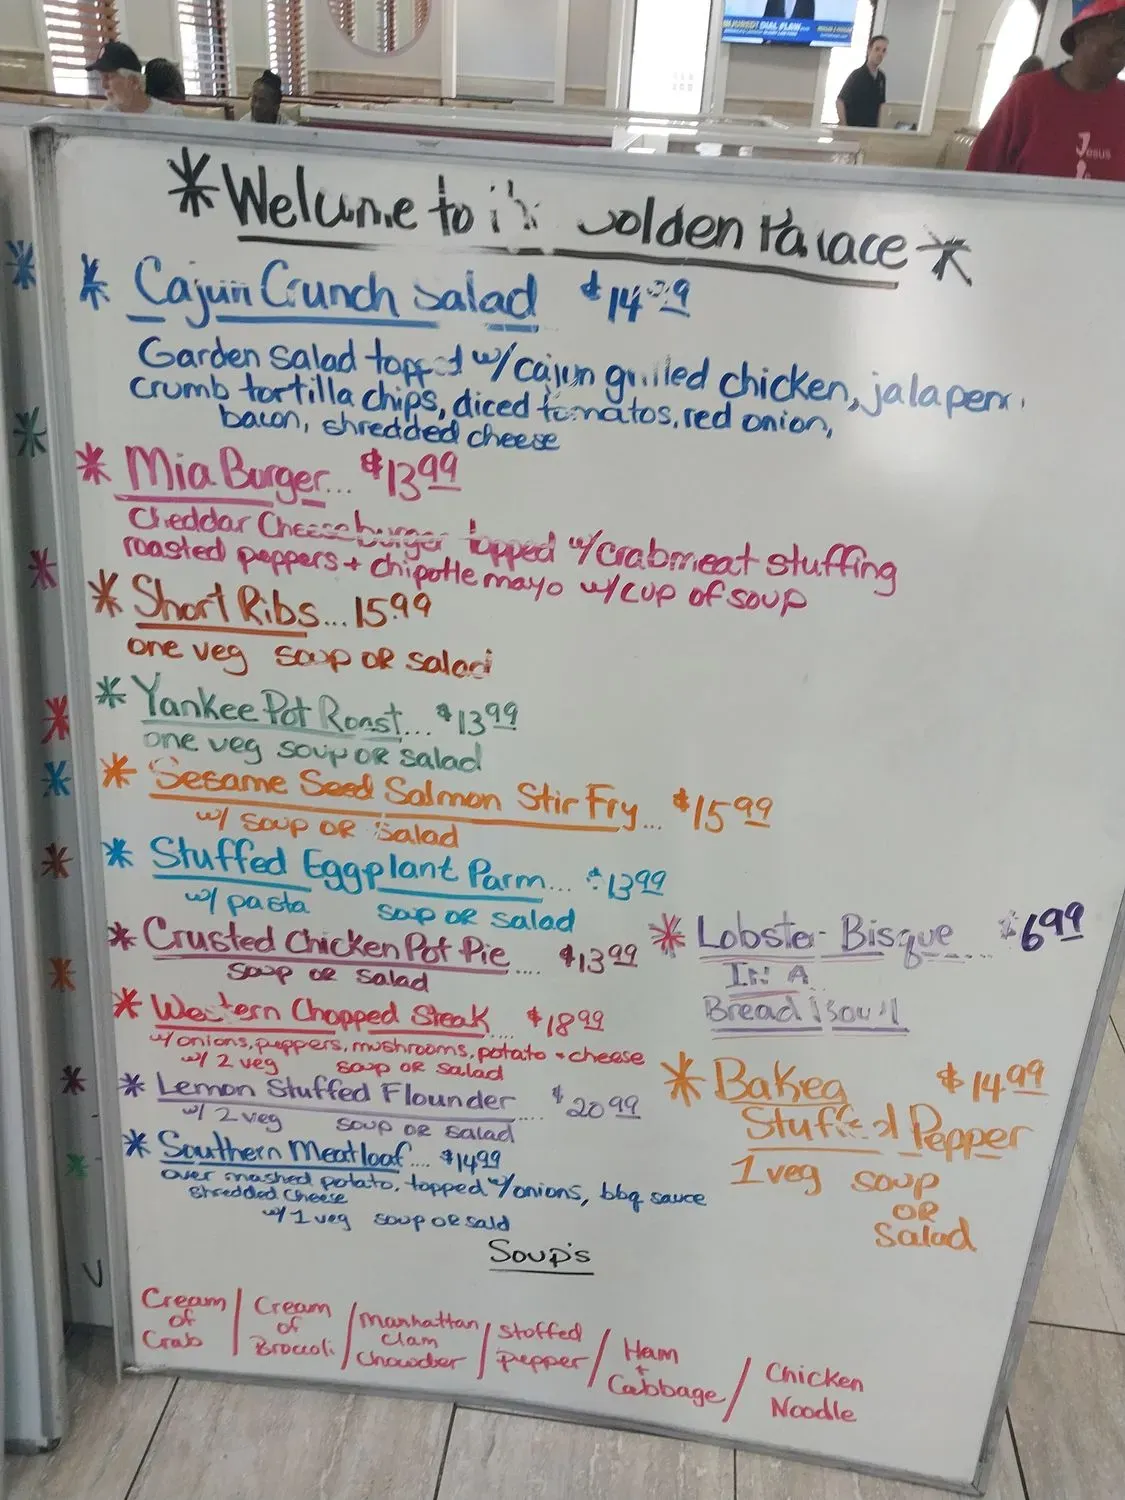 *Welcome to Golden Palace*
* Cajun Crunch Salad $14.99
Garden salad topped w/ cajun grilled chicken, jalapeno
crumb tortilla chips, diced tomatos, red onion,
bacon, shredded cheese
* Mia Burger... $13.99
Cheddar Cheeseburger topped w/ crabmeat stuffing
roasted peppers + chipotle mayo w/ cup of soup
* Short Ribs... 15.99
one veg soup OR salad
* Yankee Pot Roast... $13.99
one veg soup OR salad
* Sesame Seed Salmon Stir Fry... $15.99
w/ soup OR salad
* Stuffed Eggplant Parm... $13.99
w/ pasta soup OR salad
* Crusted Chicken Pot Pie.... $13.99
soup OR salad
* Western Chopped Steak.... $18.99
w/ onions, peppers, mushrooms, potato + cheese
w/ 2 veg soup OR salad
* Lemon Stuffed Flounder.... $20.99
w/ 2 veg soup OR salad
* Southern Meatloaf.... $14.99
over mashed potato, topped w/ onions, bbq sauce
shredded cheese
w/ 1 veg soup OR sald
* Lobster Bisque..... $6.99
In A
Bread Bowl
* Baked $14.99
Stuffed Pepper
1 veg soup
OR
Salad
Soup's
Cream of Crab / Cream of Broccoli / Manhattan Clam Chowder / Stoffed pepper / Ham + Cabbage / Chicken Noodle
Jesus